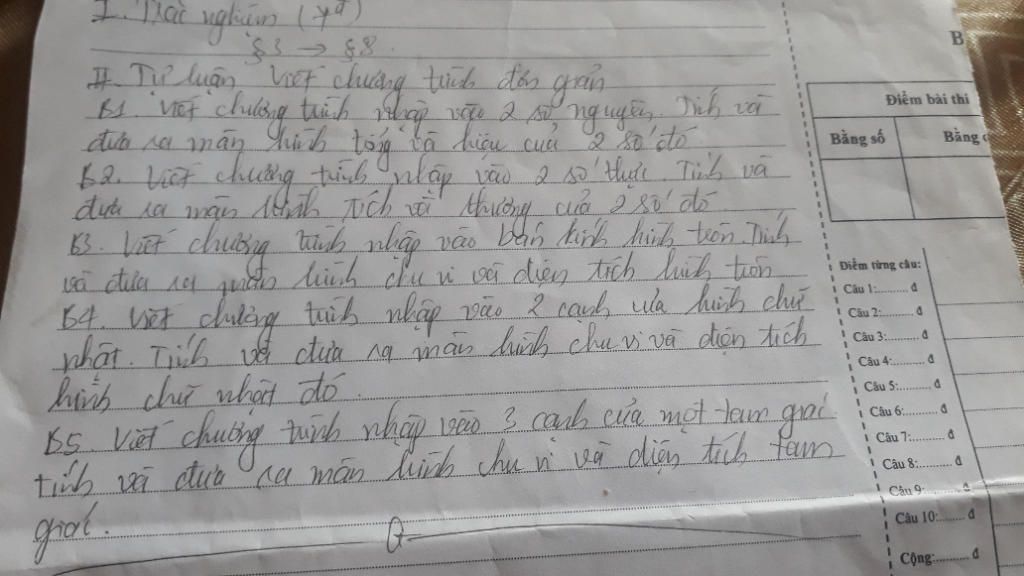 I. Trắc nghiệm (7đ)
§3 → §8.
II. Tự luận Viết chương trình đơn giản
B1. Viết chương trình nhập vào 2 số nguyên. Tính và
đưa ra màn hình tổng và hiệu của 2 số đó.
B2. Viết chương trình nhập vào 2 số thực. Tính và
đưa ra màn hình tích và thương của 2 số đó
B3. Viết chương trình nhập vào bán kính hình tròn. Tính
và đưa ra màn hình chu vi và diện tích hình tròn
B4. Viết chương trình nhập vào 2 cạnh của hình chữ
nhật. Tính và đưa ra màn hình chu vi và diện tích
hình chữ nhật đó.
B5. Viết chương trình nhập vào 3 cạnh của một tam giác
tính và đưa ra màn hình chu vi và diện tích tam
giác.
B
Điểm bài thi
Bằng số Bằng
Điểm từng câu:
Câu 1:......... đ
Câu 2:......... đ
Câu 3:......... đ
Câu 4:......... đ
Câu 5:......... đ
Câu 6:......... đ
Câu 7:......... đ
Câu 8:......... đ
Câu 9:......... đ
Câu 10:....... đ
Cộng:......... đ